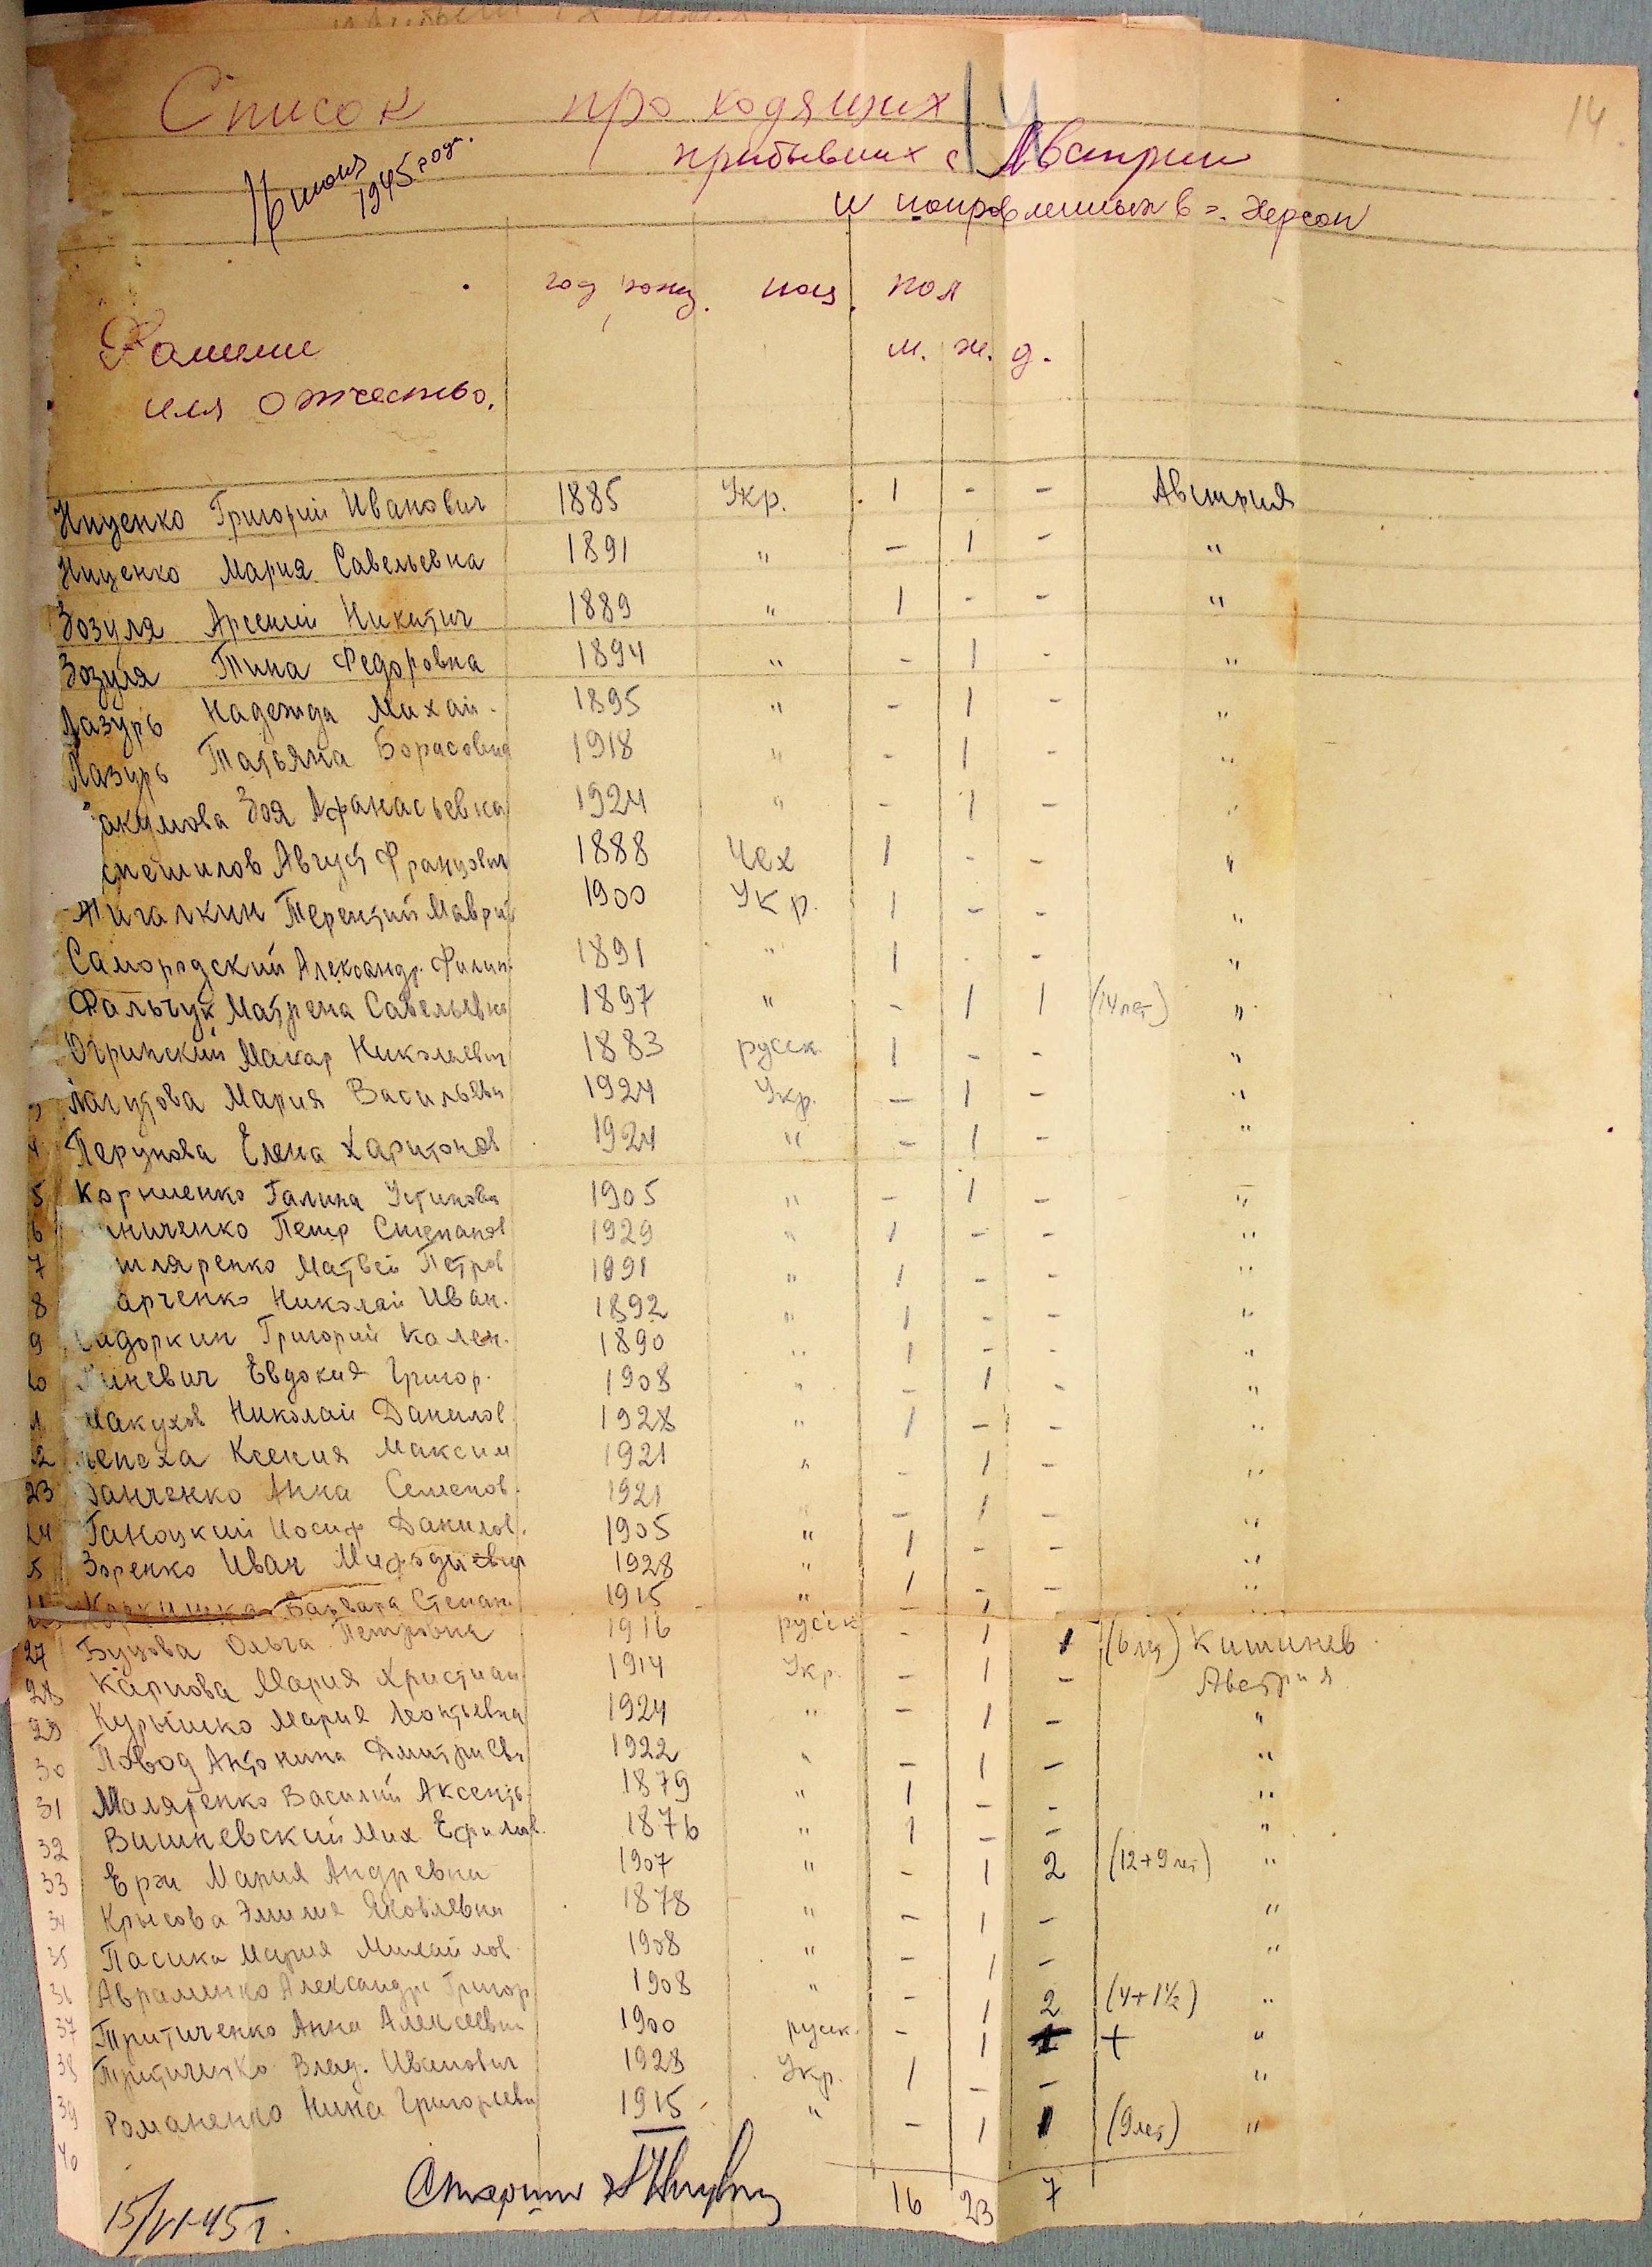 14
Список проходящих
прибывших с Австрии
16 июня 1945 года.
и напровленных в г. Херсон
год рожд. нац. пол
м. ж. д.
Фамилие
имя отчество.
Ниценко Григорий Иванович 1885 Укр. 1 - - Австрия
Ниценко Мария Савельевна 1891 " - 1 - "
Зозуля Арсений Никитич 1889 " 1 - - "
Зозуля Тина Федоровна 1894 " - 1 - "
Лазурь Надежда Михай. 1895 " - 1 - "
Лазурь Татьяна Борисовна 1918 " - 1 - "
акумова Зоя Афанасьевна 1924 " - 1 - "
Август Францович 1888 Чех 1 - - "
Жигалкин Терентий Маврий 1900 Укр. 1 - - "
Самородский Александр. Филип. 1891 " 1 - - "
Фальчук Матрена Савельевна 1897 " - 1 1 (14 лет) "
Югринский Макар Николаевич 1883 русск. 1 - - "
Мария Васильевн 1924 Укр. - 1 - "
4 Перунова Елена Харитонов 1924 " - 1 - "
5 Корниенко Галина Устиновн 1905 " - 1 - "
6 ниченко Петр Степанов 1929 " 1 - - "
7 шляренко Матвей Петров 1891 " 1 - - "
8 арченко Николай Иван. 1892 " 1 - - "
9 идоркин Григорий Кален. 1890 " 1 - - "
20 иневич Евдокия Григор. 1908 " - 1 - "
1 Макухов Николай Данилов 1928 " 1 - - "
22 епеха Ксения Максим 1921 " - 1 - "
23 анченко Анна Семенов. 1921 " - 1 - "
24 Ганоцкий Иосиф Данилов. 1905 " 1 - - "
5 Зоренко Иван Мифодиевич 1928 " 1 - - "
Варвара Степан. 1915 " - 1 - "
27 Бузова Ольга Петровна 1916 русск - 1 1 (6 лет) Кишинев.
28 Карпова Мария Христиан. 1914 Укр. - 1 - Австрия
29 Курышко Мария Леонтьевна 1924 " - 1 - "
30 Повод Антонина Дмитриевн 1922 " - 1 - "
31 Маляренко Василий Аксенть. 1879 " 1 - - "
32 Вишневский Мих Ефимов. 1876 " 1 - - "
33 Ерж Мария Андревна 1907 " - 1 2 (12+9 лет) "
34 Крысова Эмилия Яковлевна 1878 " - 1 - "
35 Пасика Мария Михайлов. 1908 " - 1 - "
36 Авраменко Александр Григор 1908 " - 1 2 (4+1½) "
37 Притиченко Анна Алексеевн 1900 русск. - 1 + "
38 Притиченко Влад. Иванович 1928 Укр. 1 - - "
39 Романенко Нина Григорьевн 1915 " - 1 1 (9 лет) "
40
16 23 7
15/VI-45 г.